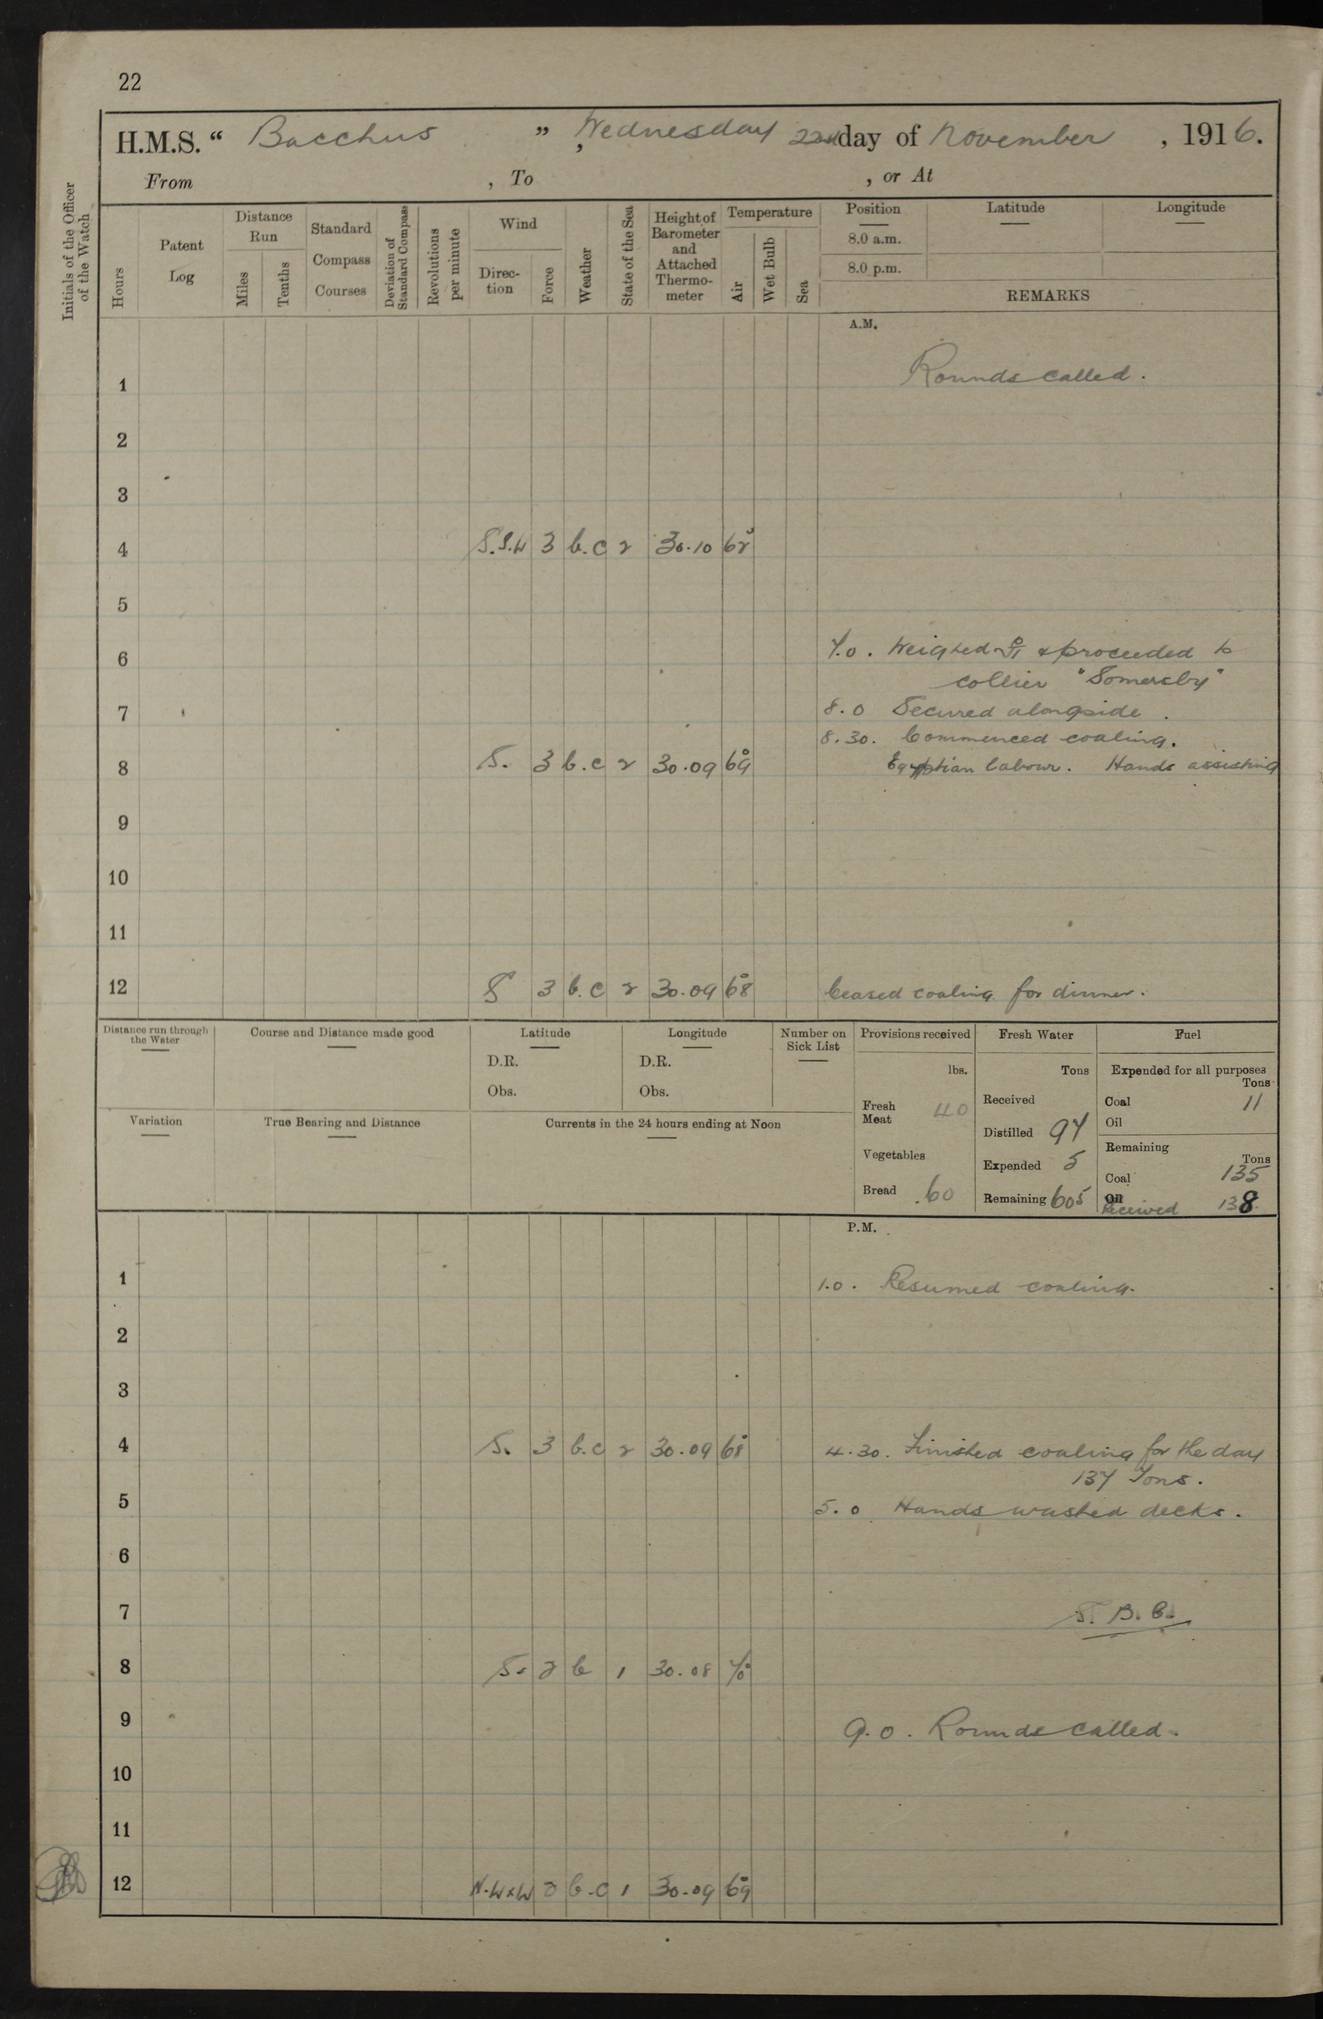 22
H.M.S. “ Bacchus ” , Wednesday 22nd day of November , 1916.
From , To , or At
Initials of the Officer of the Watch
Hours
Patent Log
Distance Run
Miles
Tenths
Standard Compass Courses
Deviation of Standard Compass
Revolutions per minute
Wind
Direc-tion
Force
Weather
State of the Sea
Height of Barometer and Attached Thermo-meter
Temperature
Air
Wet Bulb
Sea
Position Latitude Longitude
8.0 a.m.
8.0 p.m.
REMARKS
A.M.
1 Rounds called.
2
3
4 S.S.W 3 b.c 2 30.10 62°
5
6 7.0. Weighed & proceeded to
collier "Somersby"
7 8.0 Secured alongside.
8.30. Commenced coaling.
8 S. 3 b.c 2 30.09 69° Egyptian labour. Hands assisting
9
10
11
12 S 3 b.c 2 30.09 68° Ceased coaling for dinner.
Distance run through the Water
Course and Distance made good
Latitude
D.R.
Obs.
Longitude
D.R.
Obs.
Number on Sick List
Variation
True Bearing and Distance
Currents in the 24 hours ending at Noon
Provisions received
lbs.
Fresh Meat 40
Vegetables
Bread 60
Fresh Water
Tons
Received
Distilled 97
Expended 5
Remaining 605
Fuel
Expended for all purposes
Tons
Coal 11
Oil
Remaining
Tons
Coal 135
Oil
Received 138
P.M.
1 1.0. Resumed coaling.
2
3
4 S. 3 b.c 2 30.09 68° 4.30. Finished coaling for the day
137 Tons.
5 5.0 Hands washed decks.
6
7 S. B. C.
8 S. 2 b 1 30.08 70°
9 9.0. Rounds called.
10
11
12 N.W x W 2 b.c 1 30.09 69°